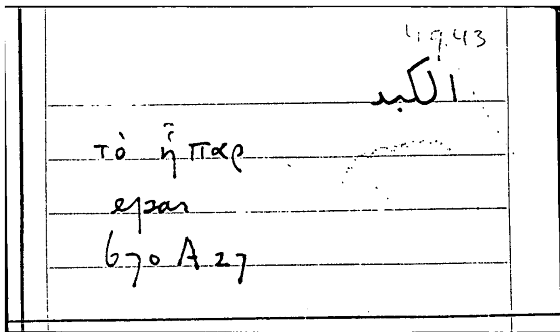 49.43
الكبد
τὸ ἧπαρ
epar
670 A 27